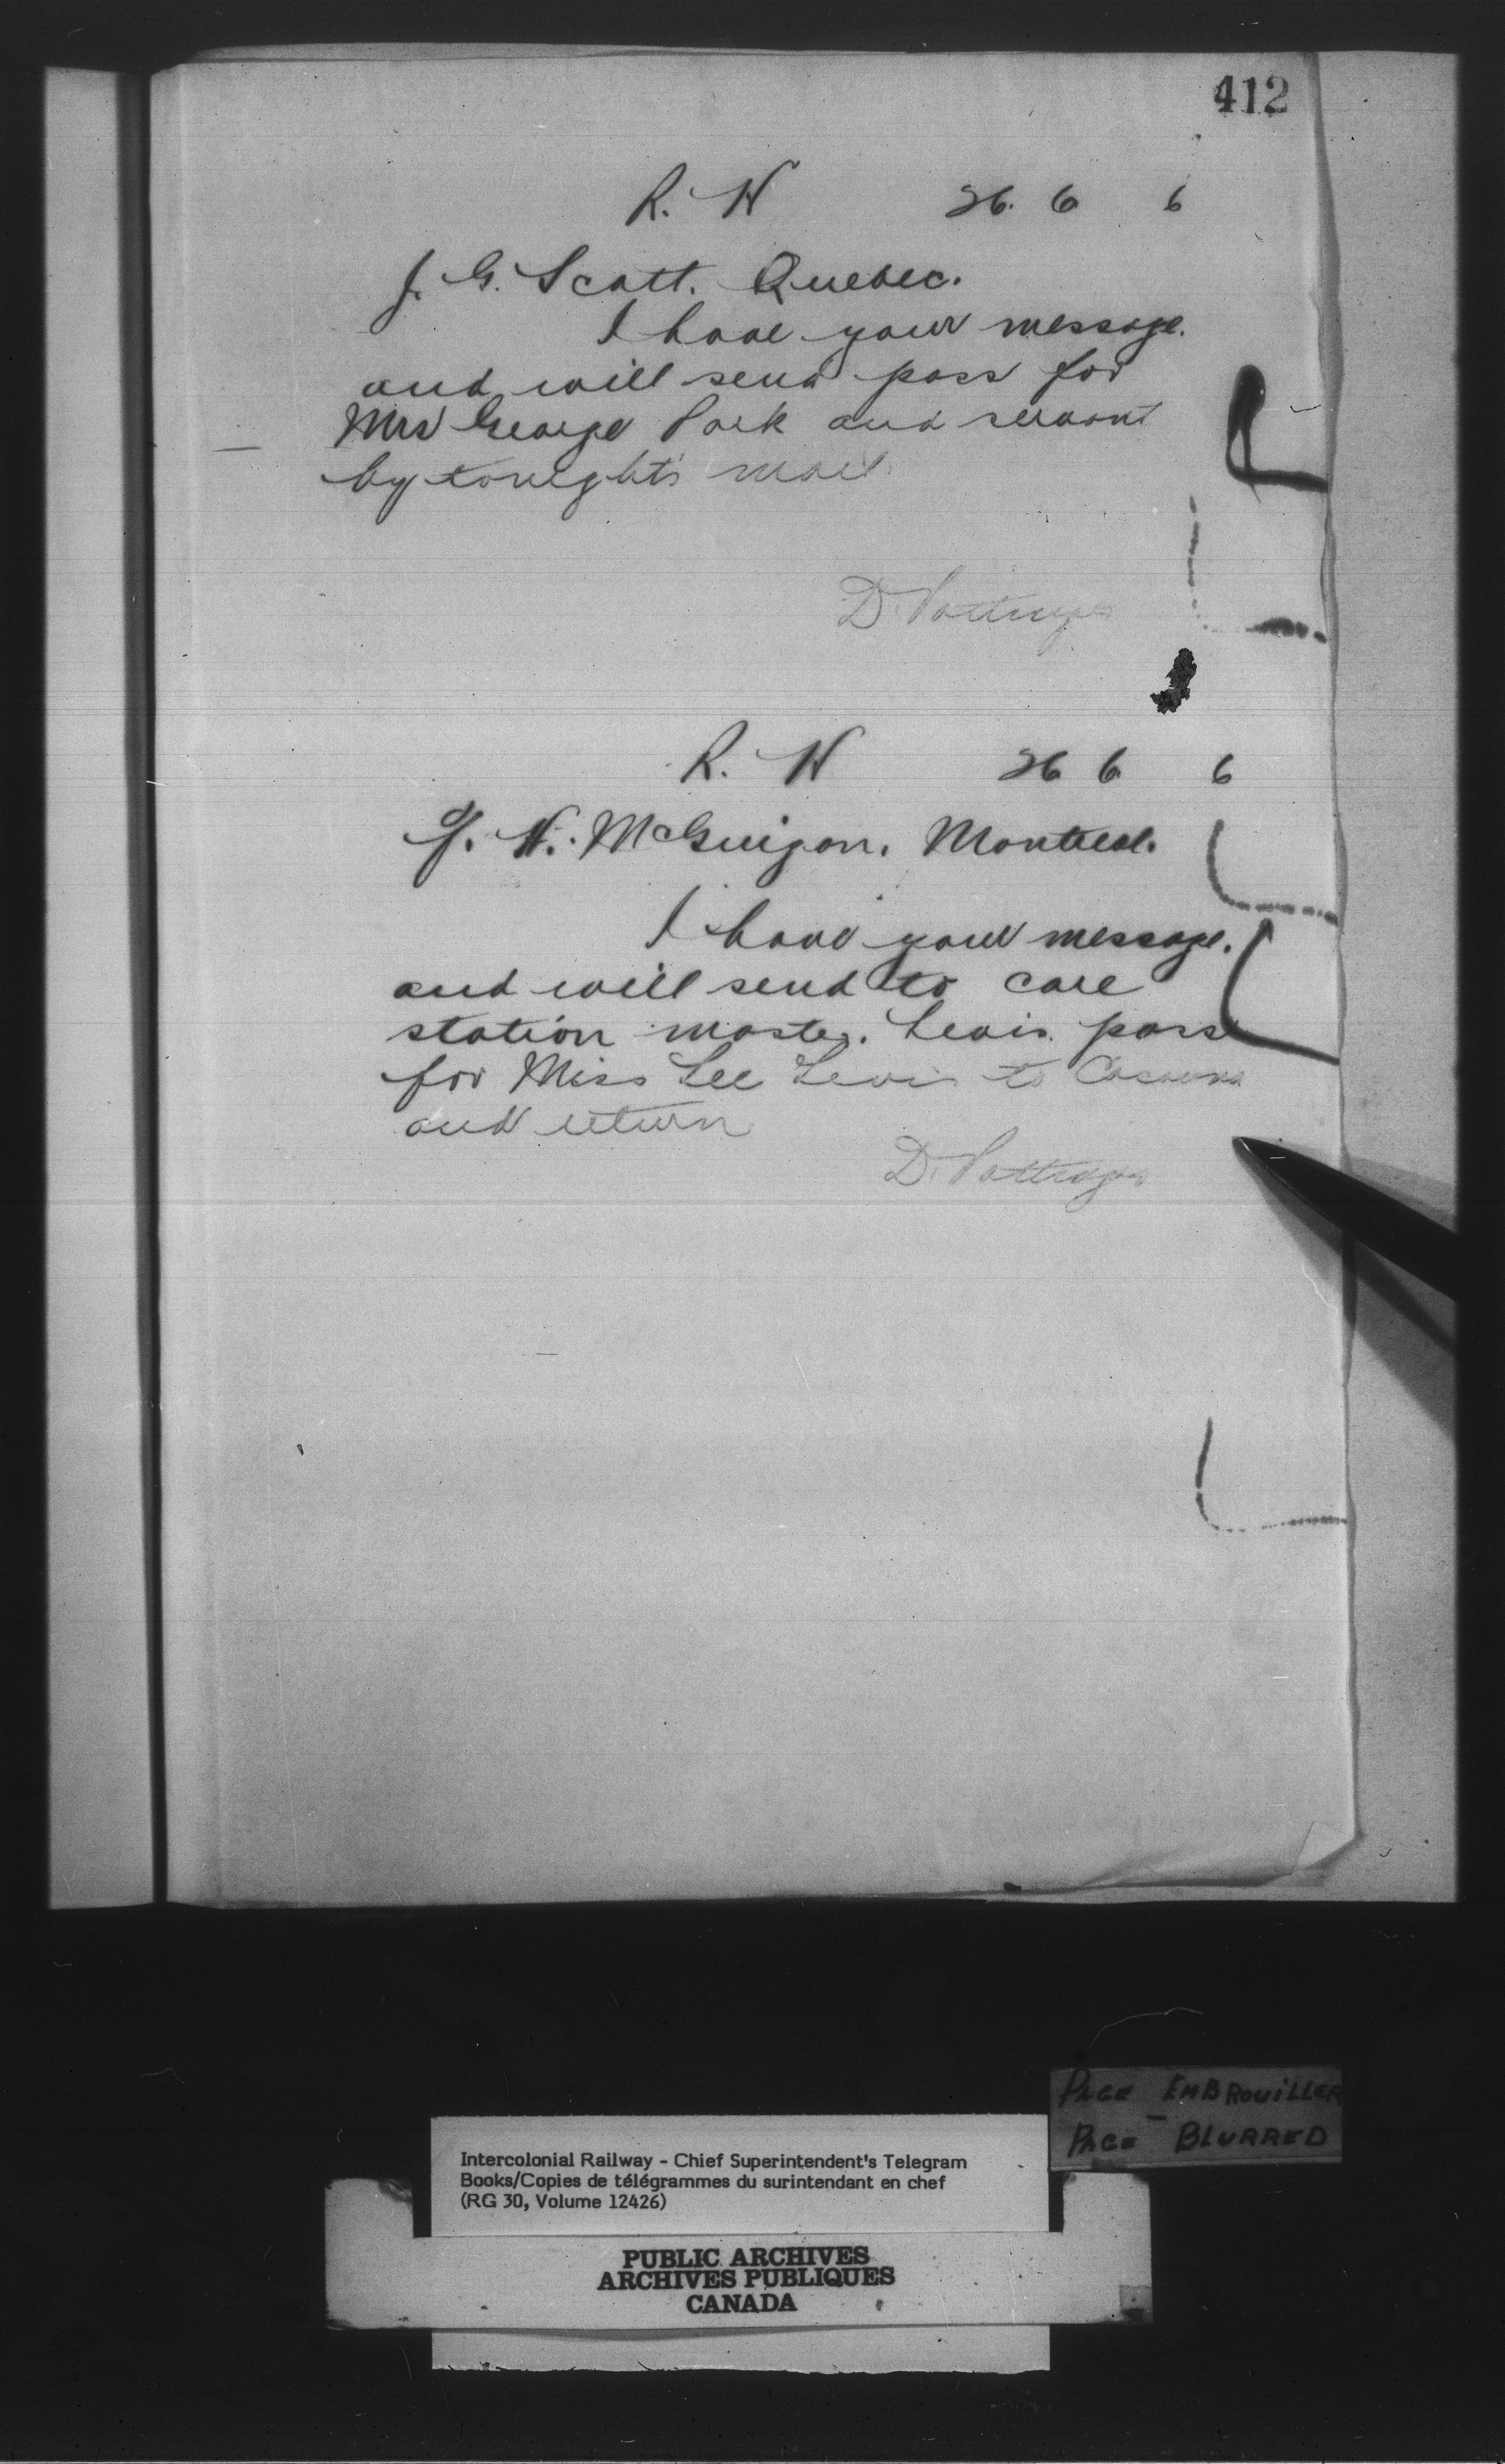 412
R. W 26. 6 6
J. G. Scott. Quebec.
I have your message.
and will send pass for
Mrs George Park and servant
by tonight's mail
D. Pottinger
R. W 26 6 6
F. H. McGuigan. Montreal.
I have your message.
and will send to care
station master. Levis. pass
for Miss Lee Levis to Cacouna
and return
D. Pottinger
PAGE EMBROUILLER
PAGE BLURRED
Intercolonial Railway - Chief Superintendent's Telegram
Books/Copies de télégrammes du surintendant en chef
(RG 30, Volume 12426)
PUBLIC ARCHIVES
ARCHIVES PUBLIQUES
CANADA